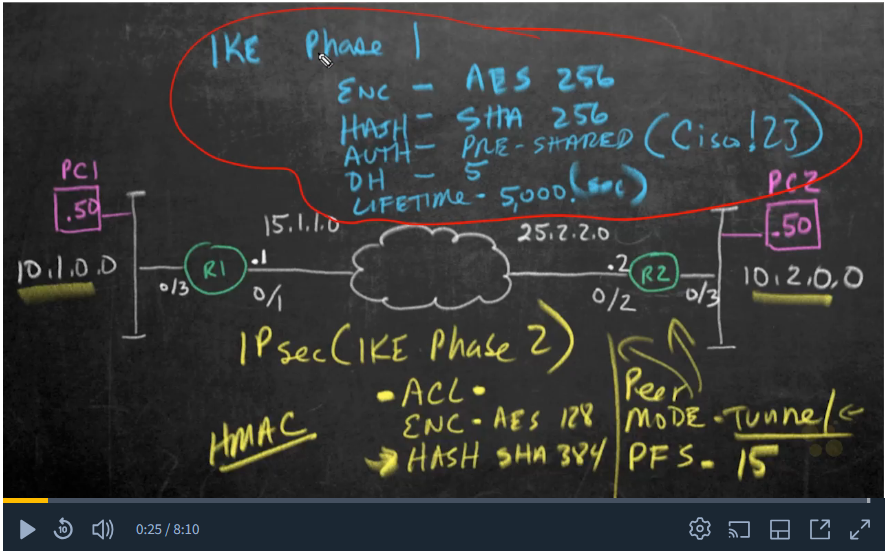 IKE Phase 1
ENC - AES 256
HASH - SHA 256
AUTH - PRE-SHARED (Cisco!23)
DH - 5
LIFETIME - 5,000 (sec)
PC1
.50
PC2
.50
15.1.1.0
25.2.2.0
10.1.0.0
R1
.1
.2
R2
10.2.0.0
0/3
0/1
0/2
0/3
IPsec (IKE Phase 2)
- ACL -
ENC - AES 128
HASH SHA 384
HMAC
Peer
MODE - Tunnel
PFS - 15
10
0:25 / 8:10